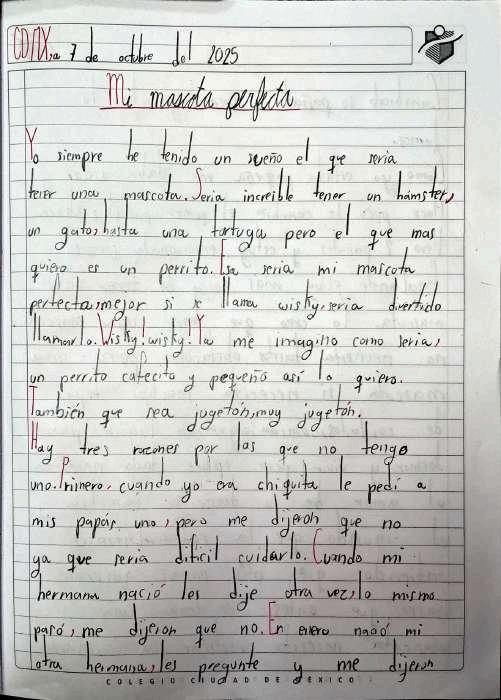 CDMX, a 7 de octubre del 2025
Mi mascota perfecta
Yo siempre he tenido un sueño el que seria
tener una mascota. Seria increible tener un hámster,
un gato, hasta una tortuga pero el que mas
quiero es un perrito. Esa seria mi mascota
perfecta, mejor si se llama wisky, seria divertido
llamarlo. Wisky! wisky! Ya me imagino como seria,
un perrito cafecito y pequeño así lo quiero.
También que sea jugetón, muy jugetón.
Hay tres razones por las que no tengo
uno. Primero, cuando yo era chiquita le pedí a
mis papás uno, pero me dijeron que no
ya que seria dificil cuidarlo. Cuando mi
hermana nació les dije otra vez, lo mismo
pasó, me dijeron que no. En enero nació mi
otra hermana, les pregunte y me dijeron
COLEGIO CIUDAD DE MÉXICO